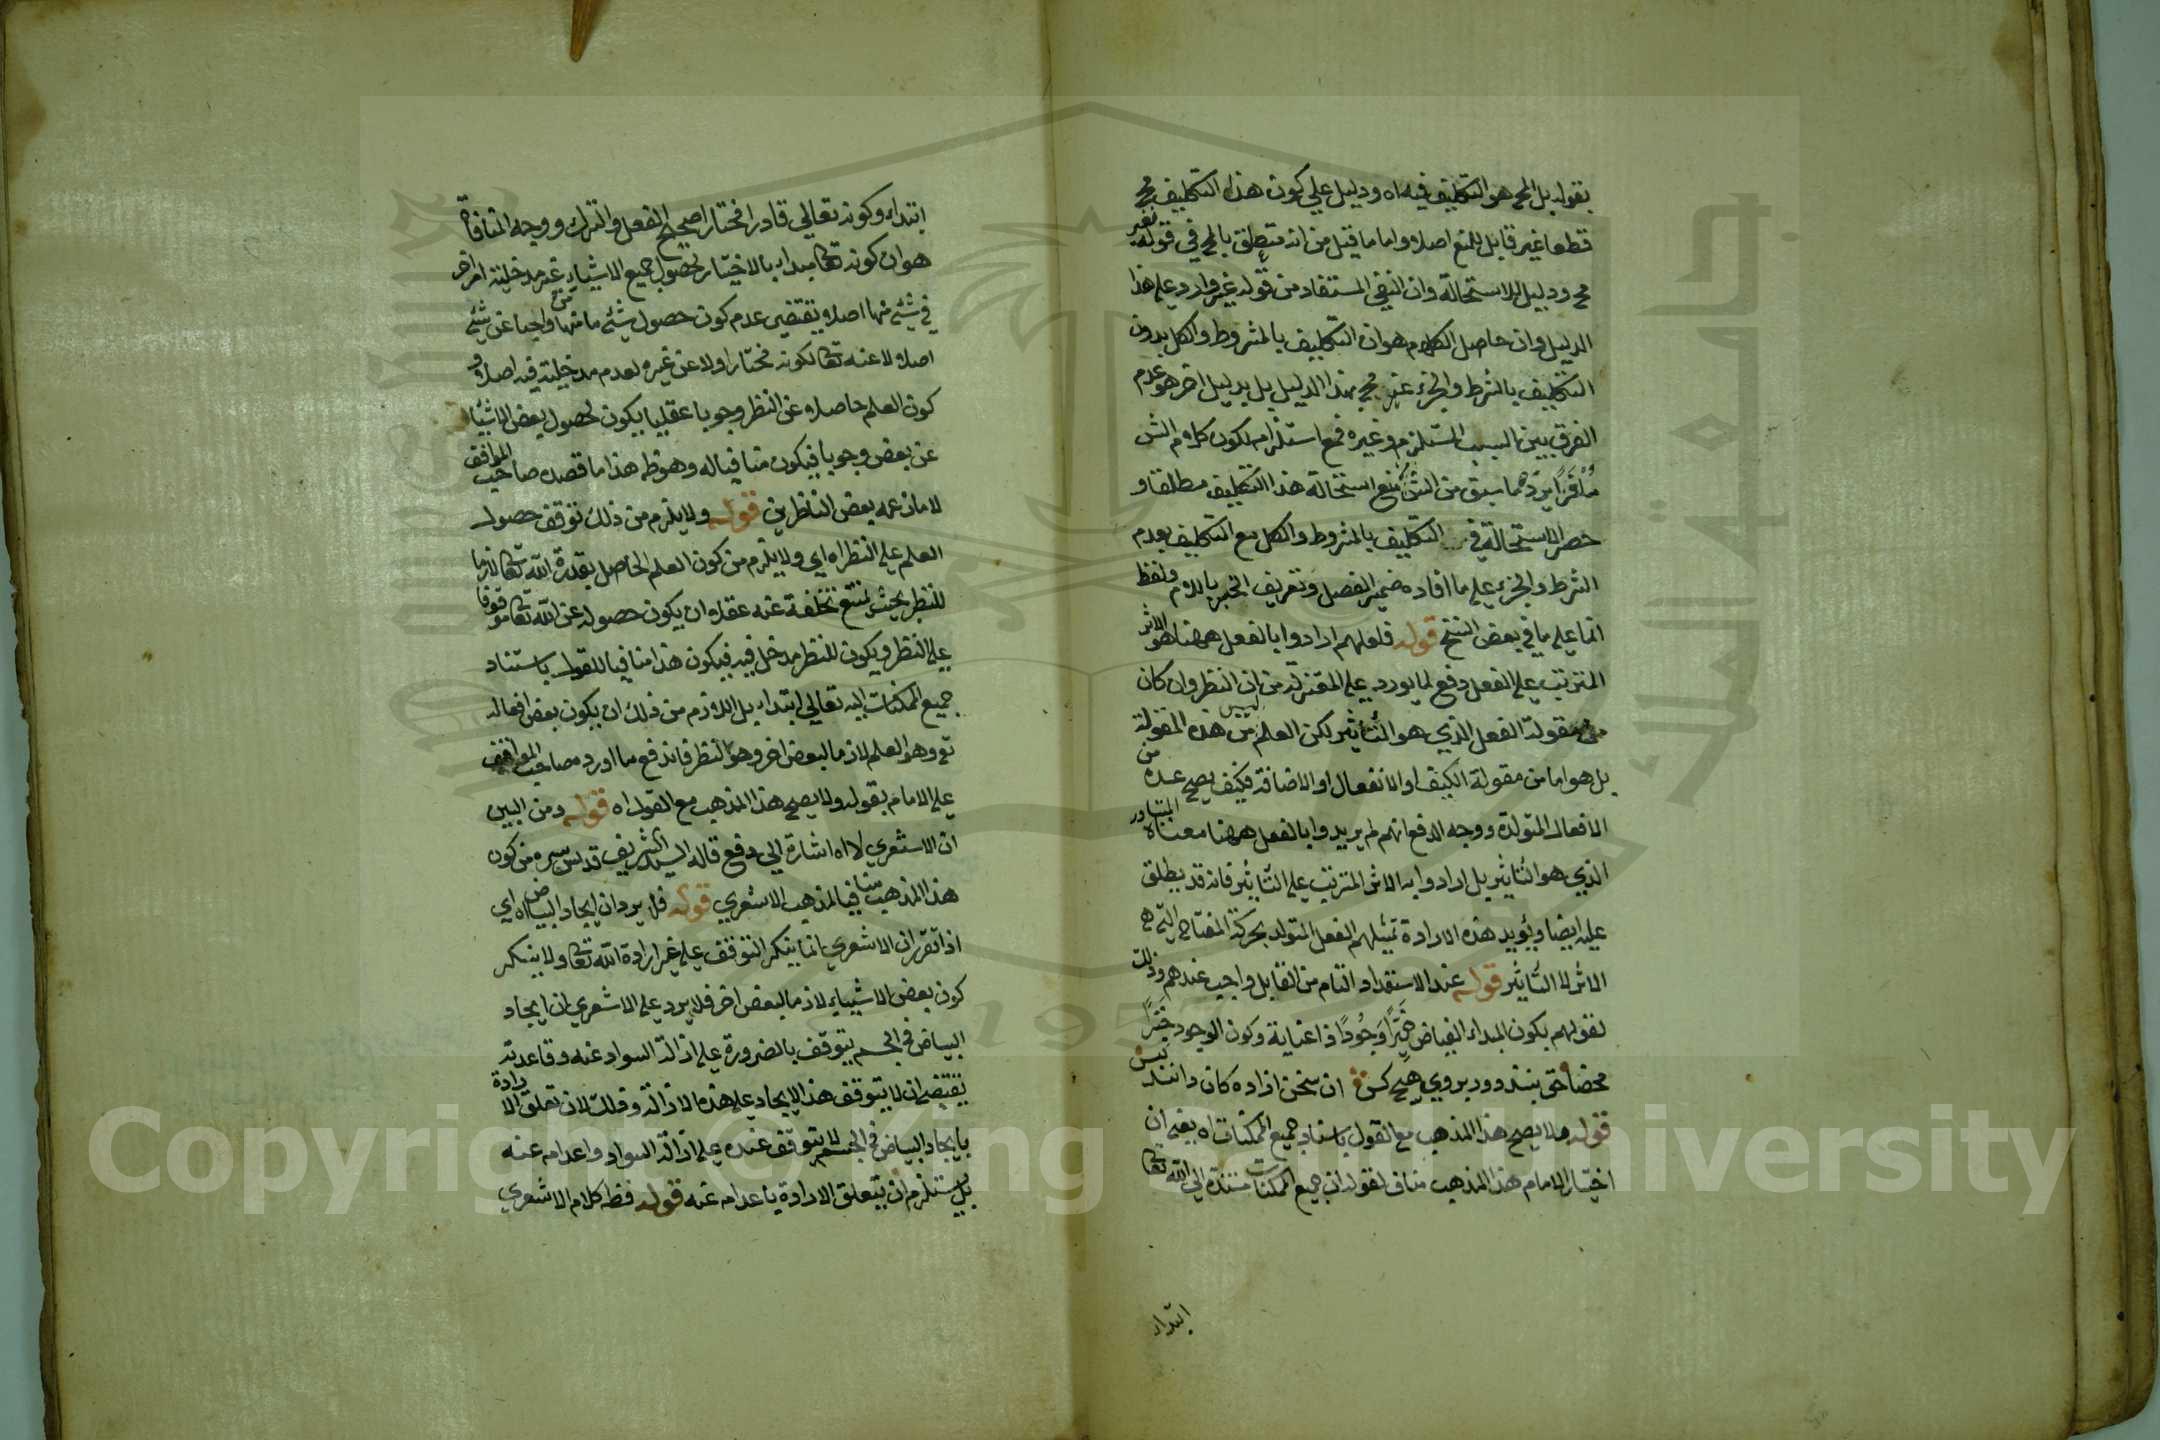 بقوله بل المح هو التكليف فيه اه ودليل علي كون هذا التكليف مح
قطعا غير قابل للمنع اصلا واما ما قيل من انه متعلق بالمح في قوله تغير
مح ودليل للاستحالة وان النفي المستفاد من قوله غير وارد علي هذا
الدليل وان حاصل الكلام هو ان التكليف بالمشروط والكل بدون
التكليف بالشرط والجزء غير مح بهذا الدليل بل بدليل اخر هو عدم
الفرق بين السبب المستلزم وغيره فمع استلزامه لكون كلام الش
يرد هما سبق من الش منع استحالة هذا التكليف مطلقا و
حصر الاستحالة في التكليف بالمشروط والكل مع التكليف بعدم
الشرط والجزء علي ما افاده ضمير الفصل وتعريف الخبر باللام ولفظ
انما علي ما في بعض النسخ قوله فلعلهم ارادوا بالفعل ههنا هو الاثر
المترتب علي الفعل دفع لما يورد علي المعتزلة من ان النظر وان كان
من مقولة الفعل الذي هو التأثير لكن العلم ليس من هذه المقولة
بل هو اما من مقولة الكيف او الانفعال او الاضافة فكيف يصح عده من
الافعال المتولدة ووجه الدفع انهم لم يريدوا بالفعل ههنا معناه المتبادر
الذي هو التأثير بل ارادوا به الاثر المترتب علي التأثير فانه قد يطلق
عليه ايضا ويؤيد هذه الارادة تمثيلهم الفعل المتولد بحركة المفتاح التي هي
الاثر لا التأثير قوله عند الاستعداد التام من القابل واجب عندهم وذلك
لقولهم بكون المبداء الفياض خيرا وجودا ذا عناية وكون الوجود خيرا
محضا حتي بنندد ور بروي هيچ كس ان سخن ازاده كان دانند بس
قوله ولا يصح هذا المذهب مع القول باستناد جميع الممكنات اه يعني ان
اختيار الامام هذا المذهب مناف لقوله ان جميع الممكنات مستندة الي الله تعا
ابتداء
ابتداء وكونه تعالي قادرا مختارا صحيح الفعل والترك ووجه المنافاة
هو ان كونه تعا مبداء بالاختيار لحصول جميع الاشياء من غير مدخلية امر اخر
في شئ منها اصلا يقتضي عدم كون حصول شئ ما منها واجبا عن شئ
اصلا لا عنه تعا لكونه مختارا ولا عن غيره لعدم مدخلية فيه اصلا و
كون العلم حاصلا عن النظر وجوبا عقليا يكون لحصول بعض الاشياء
عن بعض وجوبا فيكون منافيا له وهو ظ هذا ما قصده صاحب المواقف
لا ما زعمه بعض الناظرين قوله ولا يلزم من ذلك توقف حصول
العلم علي النظر اه اي ولا يلزم من كون العلم الحاصل بقدرة الله تعا لازما
للنظر بحيث يمتنع تخلفه عنه عقلا ان يكون حصوله عن الله تعا موقوفا
علي النظر ويكون للنظر مدخل فيه فيكون هذا منافيا للقول باستناد
جميع الممكنات اليه تعالي ابتداء بل اللازم من ذلك ان يكون بعض افعاله
تع وهو العلم لازما لبعض اخر وهو النظر فاندفع ما اورده صاحب المواقف
علي الامام بقوله ولا يصح هذا المذهب مع القول اه قوله ومن البين
ان الاشعري لا اه اشارة الي دفع قاله السيد الشريف قدس سره من كون
هذا المذهب منافيا لمذهب الاشعري قوله فلا يرد ان ايجاد البياض اه اي
اذا تقرر ان الاشعري انما ينكر التوقف علي غير ارادة الله تعا ولا ينكر
كون بعض الاشياء لازما لبعض اخر فلا يرد علي الاشعري ان ايجاد
البياض في الجسم يتوقف بالضرورة علي ازالة السواد عنه وقاعدته
تقتضي ان لا يتوقف هذا الايجاد علي هذه الازالة وذلك لان تعلق الارادة
بايجاد البياض في الجسم لا يتوقف عنده علي ازالة السواد واعدامه عنه
بل يستلزم ان يتعلق الارادة باعدامه عنه قوله فظ كلام الاشعري
Copyright © King Saud University
1957